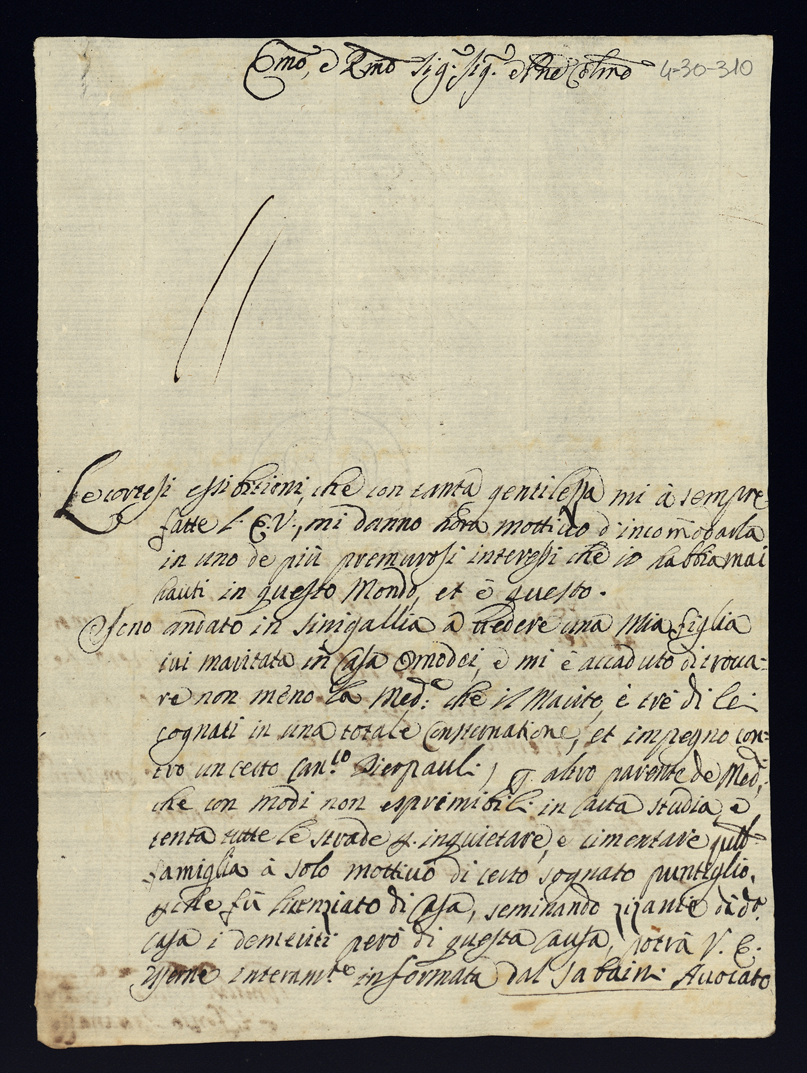 Emo, e Rmo Sig.r Sig.r e Pne Colmo 4-30-310
Le cortesi essibitioni, che con tanta gentilezza mi à sempre
fatte l'E.V., mi danno hora mottivo d'incom̃odarla
in uno de più premurosi interessi che io habbia mai
hauti in questo Mondo, et è questo.
Sono andato in Sinigallia à vedere una mia figlia
ivi maritata in Casa Omodei, e mi è accaduto di trova=
re non meno la Med.e che il Marito, e tre di lei
cognati in una totale Consternatione, et impegno con=
tro un certo Can.co Pierpauli p. altro parente de Med.i
che con modi non esprimibili in carta studia, e
tenta tutte le strade p. inquietare, e cimentare questa
famiglia à solo mottivo di certo sognato puntiglio,
perche fù licenziato di Casa, seminando zizanie di d.a
Casa i demeriti però di questa Causa, potrà V. E.
esserne interam.te informata dal Sabaini Avvocato